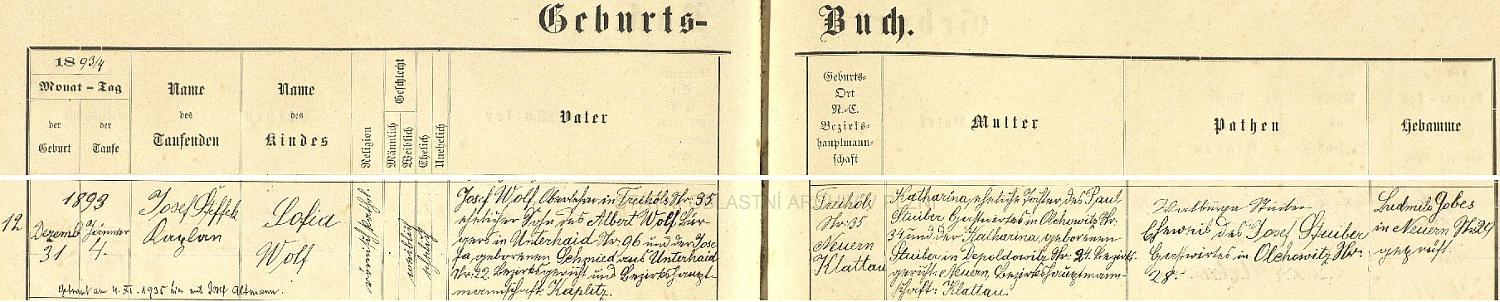 Geburts-
Buch.
1893/4
Monat - Tag
der
Geburt
der
Taufe
Name
des
Taufenden
Name
des
Kindes
Religion
Geschlecht
Männlich
Weiblich
Ehelich
Unehelich
Vater
Geburts-
Ort
N.-C.
Bezirks-
hauptmann-
schaft
Mutter
Pathen
Hebamme
12
1893
Dezemb.
31
Jänner
4.
Josef
Kaplan
Sofia
Wolf
weiblich
ehelich
Josef Wolf, Oberlehrer in Freihöls Nr. 35
ehelicher Sohn des Albert Wolf Bür-
gers in Unterhaid Nr. 96 und der Jose-
fa, geborenen Schmied aus Unterhaid
Nr. 22 Bezirksgericht und Bezirkshaupt-
mannschaft Kaplitz.
Freihöls
Nr. 35
Neuern
Klattau
Katharina, eheliche Tochter des Paul
Stuiber Gastwirtes in Olchowitz Nr.
34 und der Katharina, geborenen
Stuiber in Depoldowitz Nr. 21. Bezirks-
gericht: Neuern, Bezirkshauptmann-
schaft: Klattau.
Walburga Stuiber
Eheweib des Josef Stuiber
Gastwirtes in Olchowitz Nr.
28.
Ludmila Jobes
in Neuern Nr. 29
geprüft.
Getraut am 4. XI. 1935 hier mit Josef Altmann.
LASTNÍ